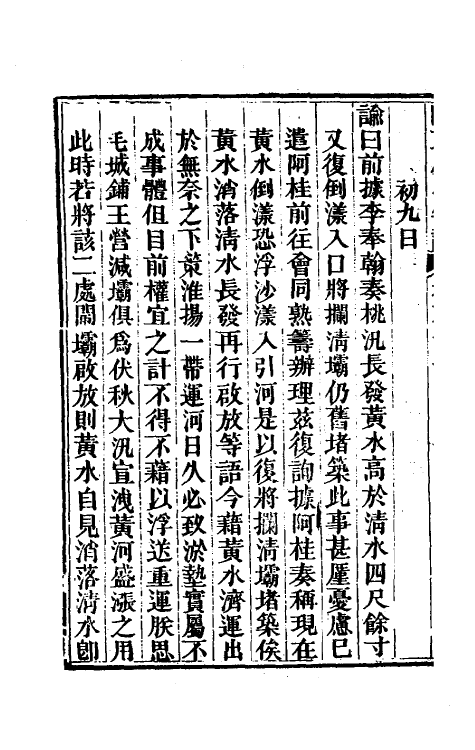 初九日
諭曰前據李奉翰奏桃汛長發黃水高於清水四尺餘寸
又復倒漾入口將攔清壩仍舊堵築此事甚厪憂慮已
遣阿桂前往會同熟籌辦理茲復詢據阿桂奏稱現在
黃水倒漾恐浮沙漾入引河是以復將攔清壩堵築俟
黃水消落清水長發再行啟放等語今藉黃水濟運出
於無奈之下策淮揚一帶運河日久必致淤墊實屬不
成事體但目前權宜之計不得不藉以浮送重運朕思
毛城鋪王營減壩俱爲伏秋大汛宣洩黃河盛漲之用
此時若將該二處閘壩啟放則黃水自見消落清水卽